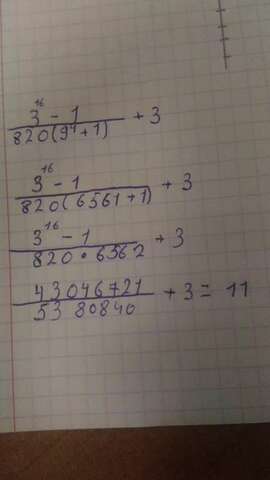 3^16 - 1 / 820(9^4 + 1) + 3
3^16 - 1 / 820(6561 + 1) + 3
3^16 - 1 / 820 • 6562 + 3
43046721 / 5380840 + 3 = 11